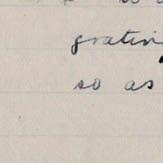 gratin
so as